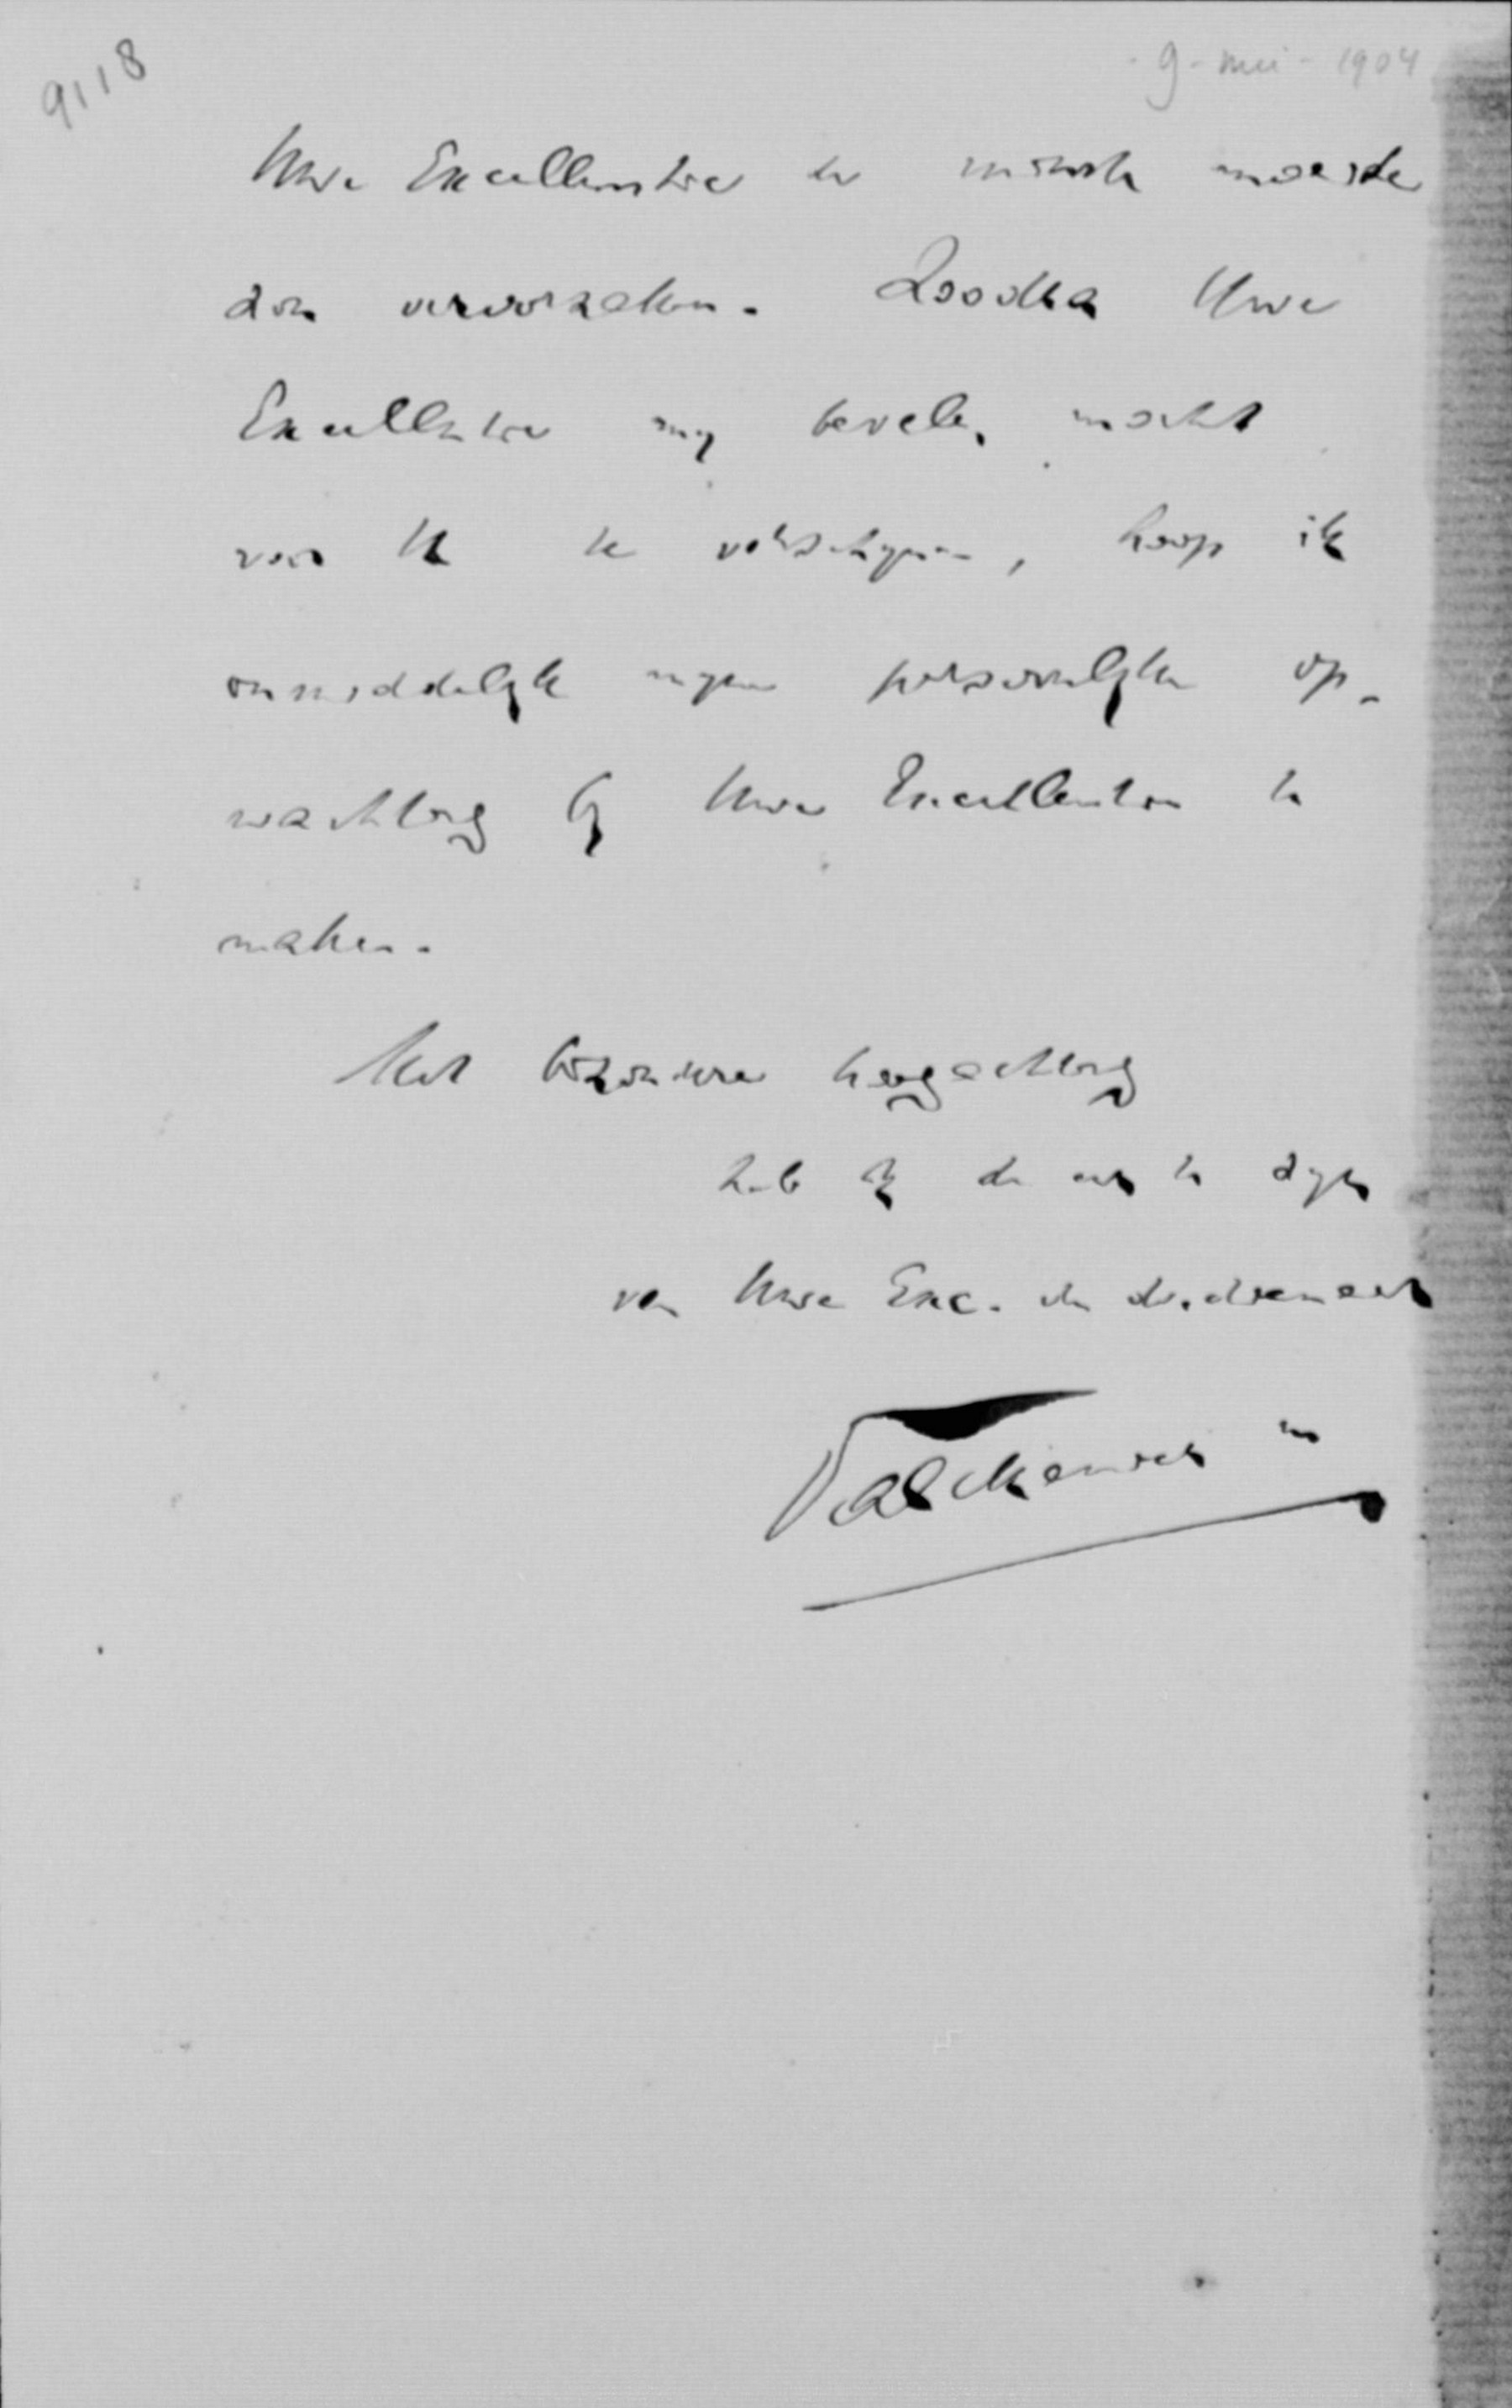 9118
9 - mei - 1904
Uwe Excellentie de minste moeite
zou veroorzaken. Zoodra Uwe
Excellentie mij bevelen mocht
voor U te verschijnen, hoop ik
onmiddelijk mijne persoonlijke op-
wachting bij Uwe Excellentie te
maken.
Met bijzondere hoogachting
heb ik de eer te zijn
van Uwe Exc. de dw. dienaar